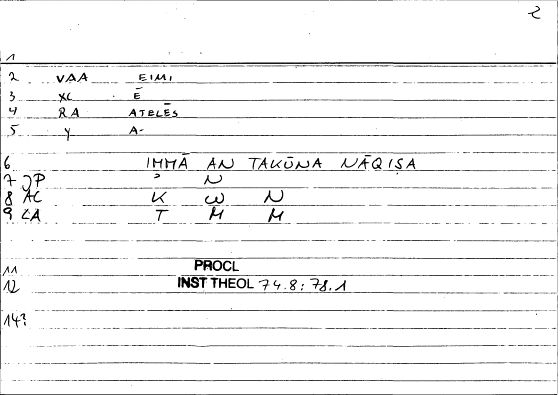 2
1
2 VAA EIMI
3 XC Ē
4 RA ATELĒS
5 Y A-
6 IMMĀ AN TAKŪNA NĀQIṢA
7 JP ʾ N
8 AC K W N
9 LA T M M
11 PROCL
12 INST THEOL 74.8: 78.1
14?